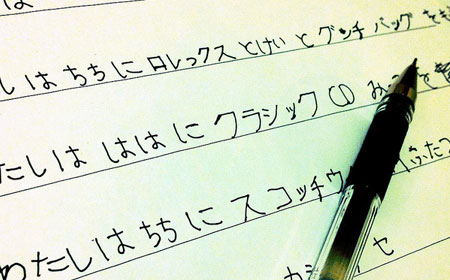 は
しは ちちに ロレックス とけい と グッチ バッグ を
たしは ははに クラシック CD み
わたしは ちちに スコッチウ ふたつ
カシ セ